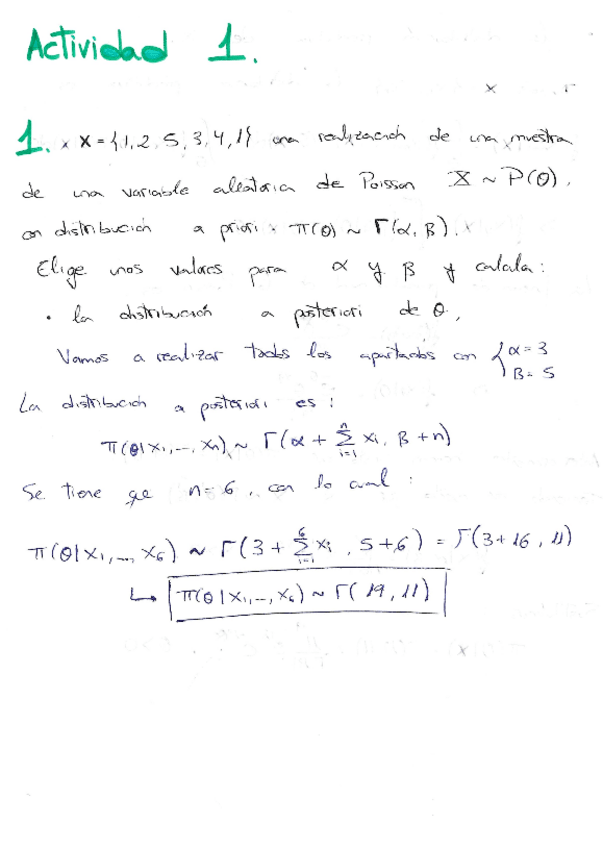 Actividad 1.
1. x X = {1, 2, 5, 3, 4, 1} una realización de una muestra
de una variable aleatoria de Poisson X ~ P(θ),
con distribución a priori π(θ) ~ Γ(α, β).
Elige unos valores para α y β y calcula:
• la distribución a posteriori de θ,
Vamos a realizar todos los apartados con { α = 3
β = 5
La distribución a posteriori es:
π(θ|x₁,...,xₙ) ~ Γ(α + Σⁿᵢ₌₁ xᵢ, β + n)
Se tiene que n = 6, con lo cual:
π(θ|x₁,...,x₆) ~ Γ(3 + Σ⁶ᵢ₌₁ xᵢ, 5+6) = Γ(3+16, 11)
↳ π(θ|x₁,...,x₆) ~ Γ(19, 11)